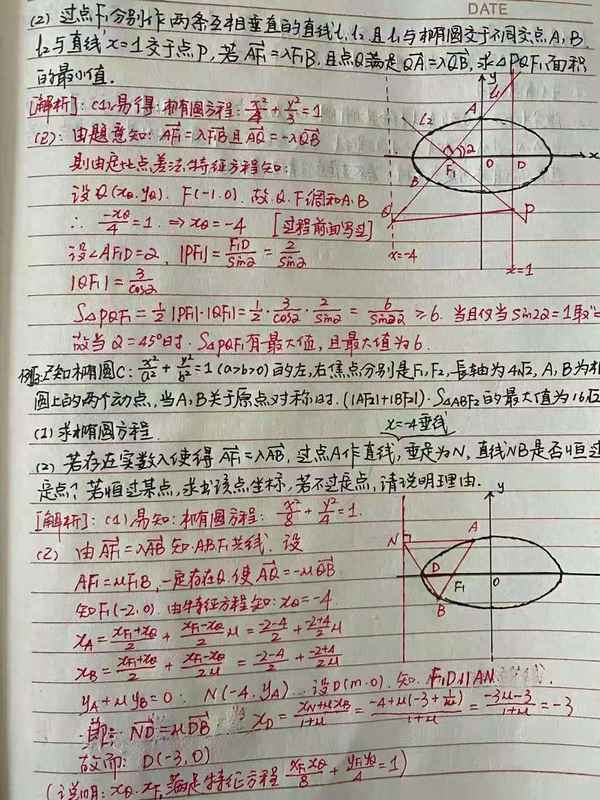 DATE
(2) 过点F₁分别作两条互相垂直的直线l₁,l₂ 且l₁与椭圆交于不同交点A,B.
l₂与直线x=1交于点P, 若 AF₁=λF₁B, 且点Q满足QA=λQB, 求△PQF₁面积
的最小值.
[解析]: (1) 易得: 椭圆方程: x²/4 + y²/3 = 1
(2): 由题意知: AF₁=λF₁B 且 AQ=-λQB
则由定比点差法,特征方程知:
设Q(xQ, yQ). F(-1,0). 故. Q. F调和A.B
∴ -xQ/4 = 1. ⇒ xQ=-4 [过程前面写过]
设∠AF₁D=2, |PF₁| = F₁D/sin2 = 2/sin2
|QF₁| = 3/cos2
S△PQF₁ = 1/2|PF₁|·|QF₁| = 1/2·3/cos2·2/sin2 = 6/sin22 ≥ 6. 当且仅当 sin22=1取"="
故当 2=45°时. S△PQF₁有最大值, 且最大值为6.
y
l₁
l₂
A
2
F₁
O
D
x
B
Q
P
x=-4
x=1
已知椭圆C: x²/a² + y²/b² = 1 (a>b>0) 的左,右焦点分别是F₁,F₂, 长轴为4√2, A,B为椭
圆上的两个动点, 当A,B关于原点对称时. (|AF₂|+|BF₂|)·S△ABF₂的最大值为16√2
(1) 求椭圆方程.
x=-4垂线
(2) 若存在实数λ使得 AF₁=λAB, 过点A作直线, 垂足为N, 直线NB是否恒过
定点? 若恒过某点, 求出该点坐标, 若不过定点, 请说明理由.
[解析]: (1) 易知: 椭圆方程: x²/8 + y²/4 = 1.
(2) 由AF₁=λAB 知. ABF₁共线. 设
AF₁=μF₁B, 一定存在Q. 使AQ=-μQB
知F₁(-2,0). 由特征方程知: xQ=-4.
xA = (xF₁+xQ)/2 + (xF₁-xQ)/2 μ = (-2-4)/2 + (-2+4)/2 μ
xB = (xF₁+xQ)/2 + (xF₁-xQ)/2μ = (-2-4)/2 + (-2+4)/2μ
yA+μyB=0. N(-4, yA) 设D(m,0). 知. F₁D∥AN
即: ND=μDB xD = (xN+μxB)/(1+μ) = (-4+μ(-3+1/μ))/(1+μ) = (-3μ-3)/(1+μ) = -3
故而: D(-3,0)
(说明: xQ. xF₁满足特征方程 xF₁xQ/8 + yF₁yQ/4 = 1)
y
N
A
D
F₁
O
B